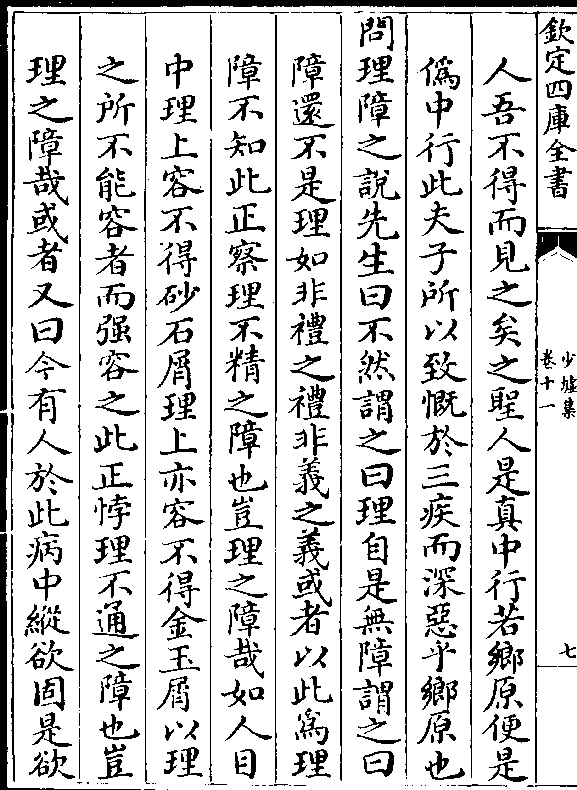 欽定四庫全書
少墟集
卷十一
七
人吾不得而見之矣之聖人是真中行若鄉原便是
僞中行此夫子所以致慨於三疾而深惡乎鄉原也
問理障之說先生曰不然謂之曰理自是無障謂之曰
障還不是理如非禮之禮非義之義或者以此爲理
障不知此正察理不精之障也豈理之障哉如人目
中理上容不得砂石屑理上亦容不得金玉屑以理
之所不能容者而强容之此正悖理不通之障也豈
理之障哉或者又曰今有人於此病中縱欲固是欲